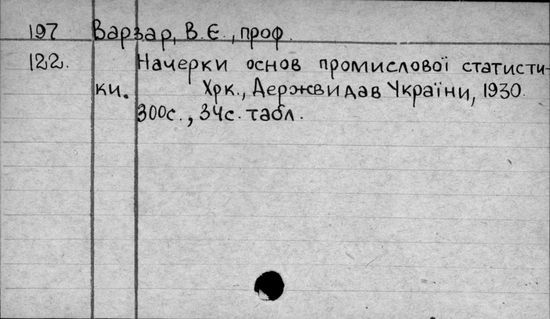 197 Варзар, В.Є., проф.
122. Начерки основ промислової статисти-
ки. Хрк., Держвидав України, 1930.
300с., 34с. табл.